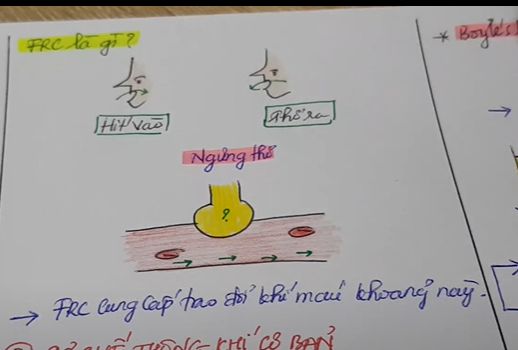 FRC là gì?
* Boyle's
Hít vào
Thở ra
Ngừng thở
?
→ FRC cung cấp trao đổi khí máu khoảng này.
THÔNG KHÍ CƠ BẢN